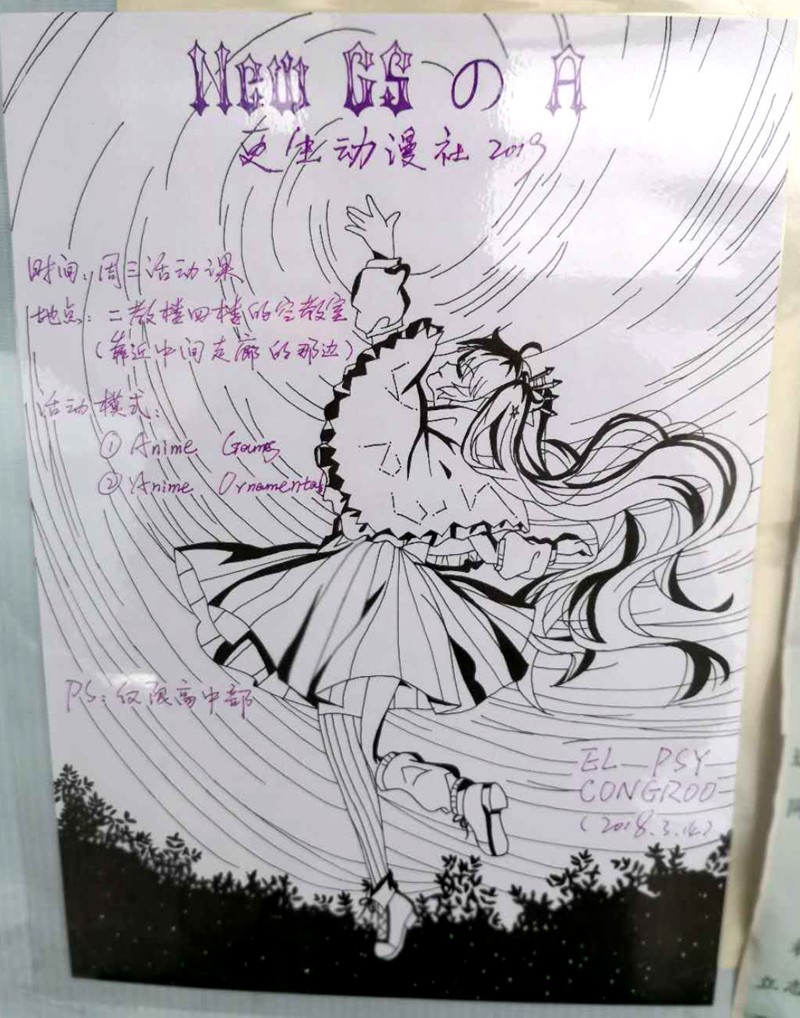 New GS の A
更生动漫社 2019
时间：周三活动课
地点：二教楼四楼的空教室
（靠近中间走廊的那边）
活动模式：
① Anime Games
② Anime Ornamental
PS：仅限高中部
EL—PSY—
CONGROO—
（2018.3.14）
立志